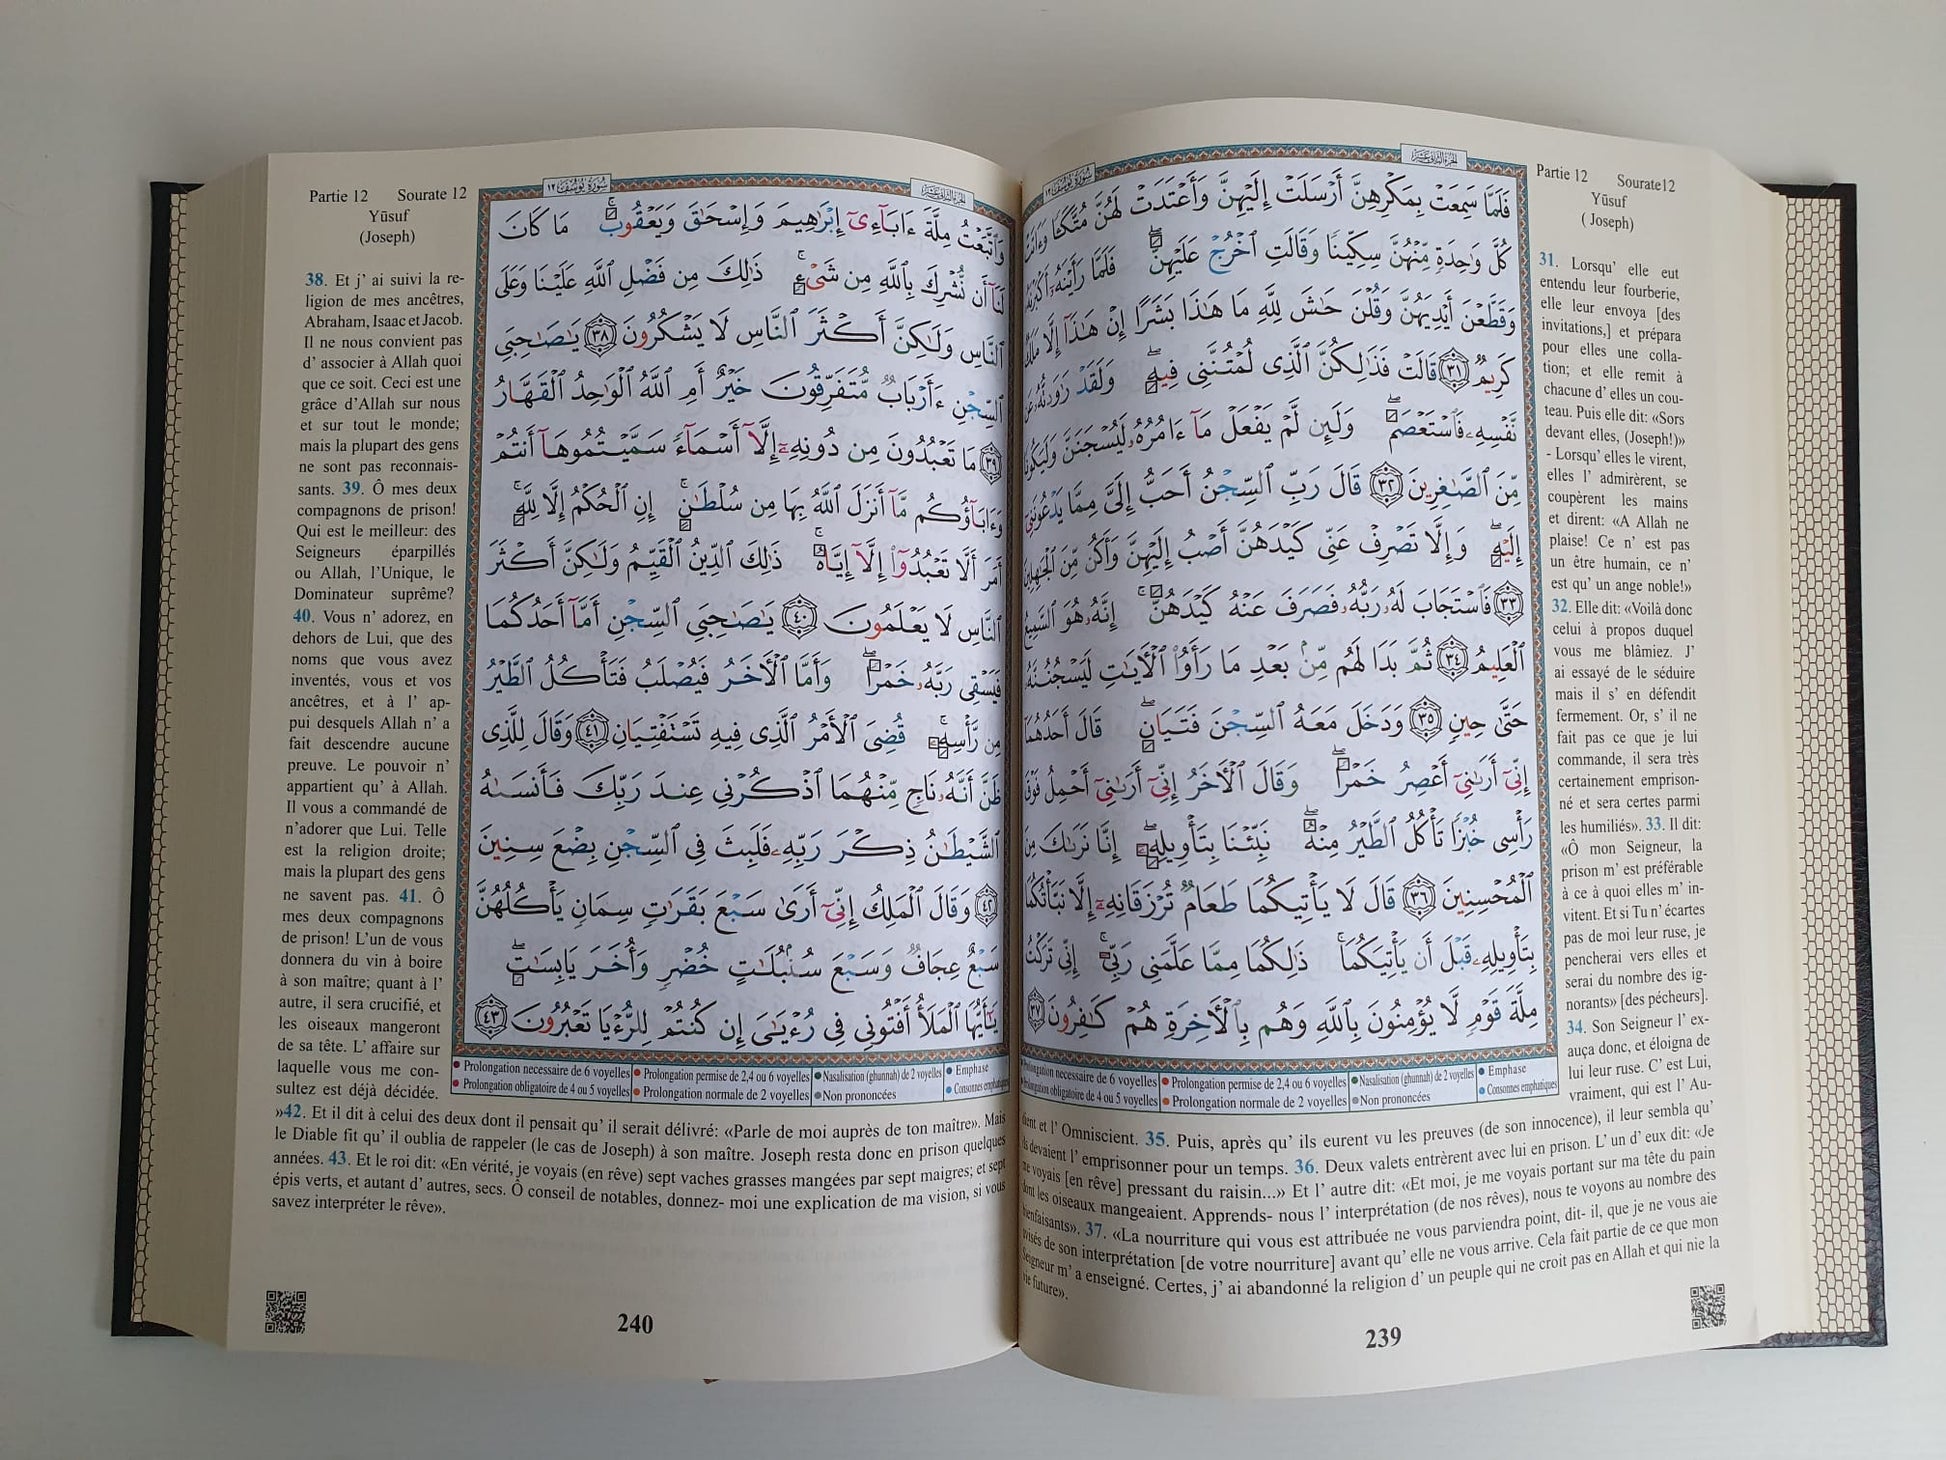 Partie 12 Sourate12
Yūsuf
( Joseph)
31. Lorsqu' elle eut
entendu leur fourberie,
elle leur envoya [des
invitations,] et prépara
pour elles une colla-
tion; et elle remit à
chacune d' elles un cou-
teau. Puis elle dit: «Sors
devant elles, (Joseph!)»
- Lorsqu' elles le virent,
elles l' admirèrent, se
coupèrent les mains
et dirent: «A Allah ne
plaise! Ce n' est pas
un être humain, ce n'
est qu' un ange noble!»
32. Elle dit: «Voilà donc
celui à propos duquel
vous me blâmiez. J'
ai essayé de le séduire
mais il s' en défendit
fermement. Or, s' il ne
fait pas ce que je lui
commande, il sera très
certainement emprison-
né et sera certes parmi
les humiliés». 33. Il dit:
«Ô mon Seigneur, la
prison m' est préférable
à ce à quoi elles m' in-
vitent. Et si Tu n' écartes
pas de moi leur ruse, je
pencherai vers elles et
serai du nombre des ig-
norants» [des pécheurs].
34. Son Seigneur l' ex-
auça donc, et éloigna de
lui leur ruse. C' est Lui,
vraiment, qui est l' Au-
الجزء الثاني عشر
سورة يوسف ١٢
فَلَمَّا سَمِعَتْ بِمَكْرِهِنَّ أَرْسَلَتْ إِلَيْهِنَّ وَأَعْتَدَتْ لَهُنَّ مُتَّكَـًٔا وَءَاتَتْ
كُلَّ وَٰحِدَةٍ مِّنْهُنَّ سِكِّينًا وَقَالَتِ ٱخْرُجْ عَلَيْهِنَّ ۖ فَلَمَّا رَأَيْنَهُۥٓ أَكْبَرْنَهُۥ
وَقَطَّعْنَ أَيْدِيَهُنَّ وَقُلْنَ حَٰشَ لِلَّهِ مَا هَٰذَا بَشَرًا إِنْ هَٰذَآ إِلَّا مَلَكٌ
كَرِيمٌ ٣١ قَالَتْ فَذَٰلِكُنَّ ٱلَّذِى لُمْتُنَّنِى فِيهِ ۖ وَلَقَدْ رَٰوَدتُّهُۥ عَن
نَّفْسِهِۦ فَٱسْتَعْصَمَ ۖ وَلَئِن لَّمْ يَفْعَلْ مَآ ءَامُرُهُۥ لَيُسْجَنَنَّ وَلَيَكُونًا
مِّنَ ٱلصَّٰغِرِينَ ٣٢ قَالَ رَبِّ ٱلسِّجْنُ أَحَبُّ إِلَىَّ مِمَّا يَدْعُونَنِىٓ
إِلَيْهِ ۖ وَإِلَّا تَصْرِفْ عَنِّى كَيْدَهُنَّ أَصْبُ إِلَيْهِنَّ وَأَكُن مِّنَ ٱلْجَٰهِلِينَ
٣٣ فَٱسْتَجَابَ لَهُۥ رَبُّهُۥ فَصَرَفَ عَنْهُ كَيْدَهُنَّ ۚ إِنَّهُۥ هُوَ ٱلسَّمِيعُ
ٱلْعَلِيمُ ٣٤ ثُمَّ بَدَا لَهُم مِّنۢ بَعْدِ مَا رَأَوُا۟ ٱلْـَٔايَٰتِ لَيَسْجُنُنَّهُۥ
حَتَّىٰ حِينٍ ٣٥ وَدَخَلَ مَعَهُ ٱلسِّجْنَ فَتَيَانِ ۖ قَالَ أَحَدُهُمَآ
إِنِّىٓ أَرَىٰنِىٓ أَعْصِرُ خَمْرًا ۖ وَقَالَ ٱلْـَٔاخَرُ إِنِّىٓ أَرَىٰنِىٓ أَحْمِلُ فَوْقَ
رَأْسِى خُبْزًا تَأْكُلُ ٱلطَّيْرُ مِنْهُ ۖ نَبِّئْنَا بِتَأْوِيلِهِۦٓ ۖ إِنَّا نَرَىٰكَ مِنَ
ٱلْمُحْسِنِينَ ٣٦ قَالَ لَا يَأْتِيكُمَا طَعَامٌ تُرْزَقَانِهِۦٓ إِلَّا نَبَّأْتُكُمَا
بِتَأْوِيلِهِۦ قَبْلَ أَن يَأْتِيَكُمَا ۚ ذَٰلِكُمَا مِمَّا عَلَّمَنِى رَبِّىٓ ۚ إِنِّى تَرَكْتُ
مِلَّةَ قَوْمٍ لَّا يُؤْمِنُونَ بِٱللَّهِ وَهُم بِٱلْـَٔاخِرَةِ هُمْ كَٰفِرُونَ ٣٧
Prolongation necessaire de 6 voyelles Prolongation permise de 2,4 ou 6 voyelles Nasalisation (ghunnah) de 2 voyelles Emphase
Prolongation obligatoire de 4 ou 5 voyelles Prolongation normale de 2 voyelles Non prononcées Consonnes emphatiques
dient et l' Omniscient. 35. Puis, après qu' ils eurent vu les preuves (de son innocence), il leur sembla qu'
ils devaient l' emprisonner pour un temps. 36. Deux valets entrèrent avec lui en prison. L' un d' eux dit: «Je
me voyais [en rêve] pressant du raisin...» Et l' autre dit: «Et moi, je me voyais portant sur ma tête du pain
dont les oiseaux mangeaient. Apprends- nous l' interprétation (de nos rêves), nous te voyons au nombre des
bienfaisants». 37. «La nourriture qui vous est attribuée ne vous parviendra point, dit- il, que je ne vous aie
avisés de son interprétation [de votre nourriture] avant qu' elle ne vous arrive. Cela fait partie de ce que mon
Seigneur m' a enseigné. Certes, j' ai abandonné la religion d' un peuple qui ne croit pas en Allah et qui nie la
vie future».
239
Partie 12 Sourate 12
Yūsuf
(Joseph)
38. Et j' ai suivi la re-
ligion de mes ancêtres,
Abraham, Isaac et Jacob.
Il ne nous convient pas
d' associer à Allah quoi
que ce soit. Ceci est une
grâce d'Allah sur nous
et sur tout le monde;
mais la plupart des gens
ne sont pas reconnais-
sants. 39. Ô mes deux
compagnons de prison!
Qui est le meilleur: des
Seigneurs éparpillés
ou Allah, l'Unique, le
Dominateur suprême?
40. Vous n' adorez, en
dehors de Lui, que des
noms que vous avez
inventés, vous et vos
ancêtres, et à l' ap-
pui desquels Allah n' a
fait descendre aucune
preuve. Le pouvoir n'
appartient qu' à Allah.
Il vous a commandé de
n'adorer que Lui. Telle
est la religion droite;
mais la plupart des gens
ne savent pas. 41. Ô
mes deux compagnons
de prison! L'un de vous
donnera du vin à boire
à son maître; quant à l'
autre, il sera crucifié, et
les oiseaux mangeront
de sa tête. L' affaire sur
laquelle vous me con-
sultez est déjà décidée.
الجزء الثاني عشر
سورة يوسف ١٢
وَٱتَّبَعْتُ مِلَّةَ ءَابَآءِىٓ إِبْرَٰهِيمَ وَإِسْحَٰقَ وَيَعْقُوبَ ۚ مَا كَانَ
لَنَآ أَن نُّشْرِكَ بِٱللَّهِ مِن شَىْءٍ ۚ ذَٰلِكَ مِن فَضْلِ ٱللَّهِ عَلَيْنَا وَعَلَى
ٱلنَّاسِ وَلَٰكِنَّ أَكْثَرَ ٱلنَّاسِ لَا يَشْكُرُونَ ٣٨ يَٰصَٰحِبَىِ
ٱلسِّجْنِ ءَأَرْبَابٌ مُّتَفَرِّقُونَ خَيْرٌ أَمِ ٱللَّهُ ٱلْوَٰحِدُ ٱلْقَهَّارُ
٣٩ مَا تَعْبُدُونَ مِن دُونِهِۦٓ إِلَّآ أَسْمَآءً سَمَّيْتُمُوهَآ أَنتُمْ
وَءَابَآؤُكُم مَّآ أَنزَلَ ٱللَّهُ بِهَا مِن سُلْطَٰنٍ ۚ إِنِ ٱلْحُكْمُ إِلَّا لِلَّهِ ۚ
أَمَرَ أَلَّا تَعْبُدُوٓا۟ إِلَّآ إِيَّاهُ ۚ ذَٰلِكَ ٱلدِّينُ ٱلْقَيِّمُ وَلَٰكِنَّ أَكْثَرَ
ٱلنَّاسِ لَا يَعْلَمُونَ ٤٠ يَٰصَٰحِبَىِ ٱلسِّجْنِ أَمَّآ أَحَدُكُمَا
فَيَسْقِى رَبَّهُۥ خَمْرًا ۖ وَأَمَّا ٱلْـَٔاخَرُ فَيُصْلَبُ فَتَأْكُلُ ٱلطَّيْرُ
مِن رَّأْسِهِۦ ۚ قُضِىَ ٱلْأَمْرُ ٱلَّذِى فِيهِ تَسْتَفْتِيَانِ ٤١ وَقَالَ لِلَّذِى
ظَنَّ أَنَّهُۥ نَاجٍ مِّنْهُمَا ٱذْكُرْنِى عِندَ رَبِّكَ فَأَنسَىٰهُ
ٱلشَّيْطَٰنُ ذِكْرَ رَبِّهِۦ فَلَبِثَ فِى ٱلسِّجْنِ بِضْعَ سِنِينَ
٤٢ وَقَالَ ٱلْمَلِكُ إِنِّىٓ أَرَىٰ سَبْعَ بَقَرَٰتٍ سِمَانٍ يَأْكُلُهُنَّ
سَبْعٌ عِجَافٌ وَسَبْعَ سُنۢبُلَٰتٍ خُضْرٍ وَأُخَرَ يَابِسَٰتٍ ۖ
يَٰٓأَيُّهَا ٱلْمَلَأُ أَفْتُونِى فِى رُءْيَٰىَ إِن كُنتُمْ لِلرُّءْيَا تَعْبُرُونَ ٤٣
Prolongation necessaire de 6 voyelles Prolongation permise de 2,4 ou 6 voyelles Nasalisation (ghunnah) de 2 voyelles Emphase
Prolongation obligatoire de 4 ou 5 voyelles Prolongation normale de 2 voyelles Non prononcées Consonnes emphatiques
»42. Et il dit à celui des deux dont il pensait qu' il serait délivré: «Parle de moi auprès de ton maître». Mais
le Diable fit qu' il oublia de rappeler (le cas de Joseph) à son maître. Joseph resta donc en prison quelques
années. 43. Et le roi dit: «En vérité, je voyais (en rêve) sept vaches grasses mangées par sept maigres; et sept
épis verts, et autant d' autres, secs. Ô conseil de notables, donnez- moi une explication de ma vision, si vous
savez interpréter le rêve».
240